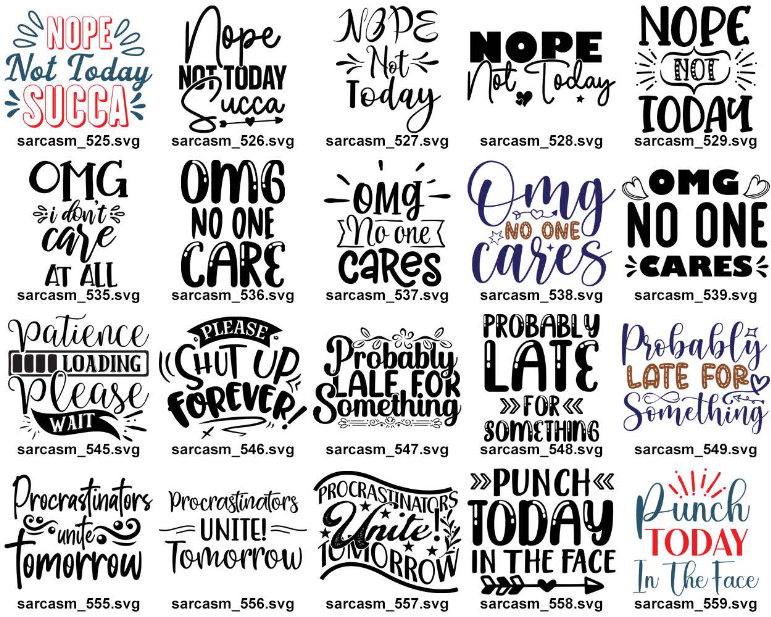 NOPE
Not Today
SUCCA
sarcasm_525.svg
Nope
NOT TODAY
Succa
sarcasm_526.svg
NOPE
Not
Today
sarcasm_527.svg
NOPE
Not Today
sarcasm_528.svg
NOPE
NOT
TODAY
sarcasm_529.svg
OMG
i don't
care
AT ALL
sarcasm_535.svg
OMG
NO ONE
CARE
sarcasm_536.svg
OMG
No one
CARES
sarcasm_537.svg
Omg
NO ONE
cares
sarcasm_538.svg
OMG
NO ONE
CARES
sarcasm_539.svg
Patience
LOADING
Please
WAIT
sarcasm_545.svg
PLEASE
SHUT UP
FOREVER!
sarcasm_546.svg
Probably
LALE FOR
Something
sarcasm_547.svg
PROBABLY
LATE
FOR
SOMETHING
sarcasm_548.svg
Probably
LATE FOR
Something
sarcasm_549.svg
Procrastinators
unite
tomorrow
sarcasm_555.svg
Procrastinators
UNITE!
Tomorrow
sarcasm_556.svg
PROCRASTINATORS
Unite!
TOMORROW
sarcasm_557.svg
PUNCH
TODAY
IN THE FACE
sarcasm_558.svg
Punch
TODAY
In The Face
sarcasm_559.svg